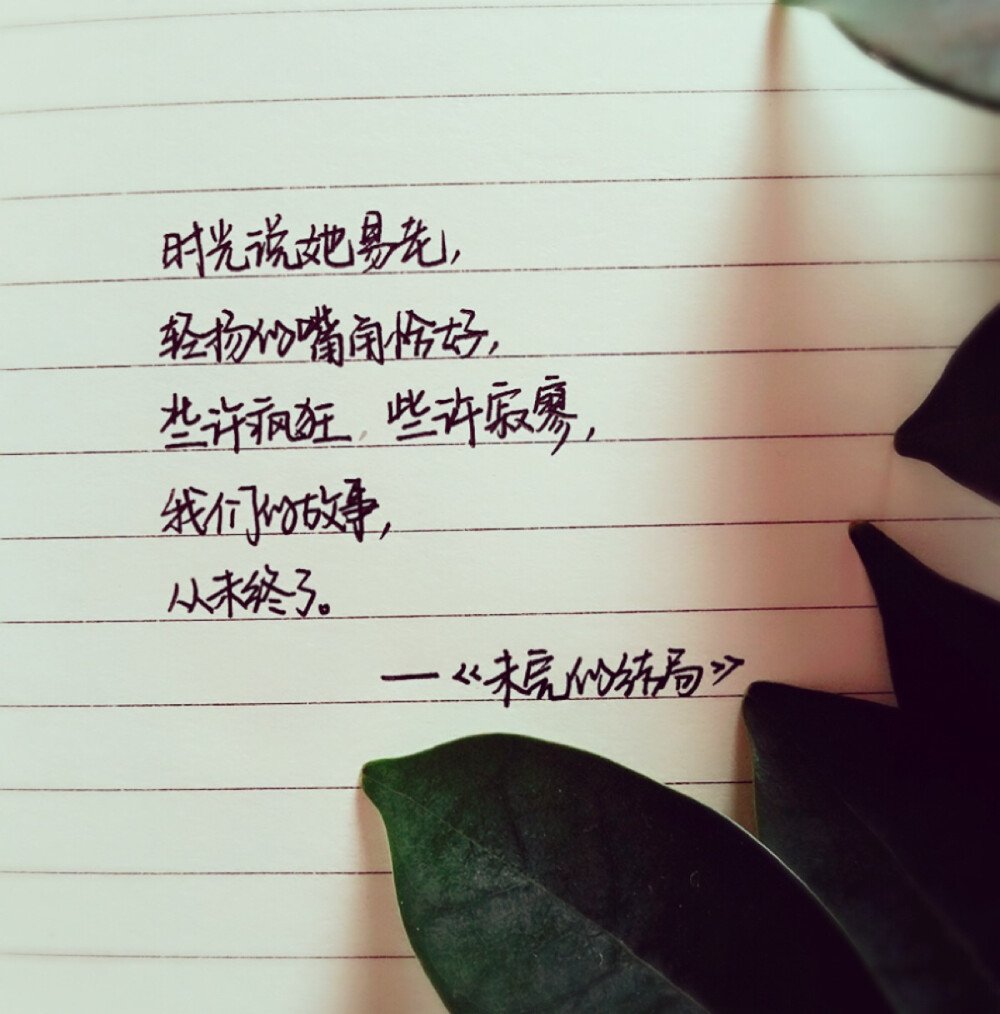 时光说她易老，
轻扬的嘴角恰好，
些许疯狂，些许寂寥，
我们的故事，
从未终了。
—《未完的结局》